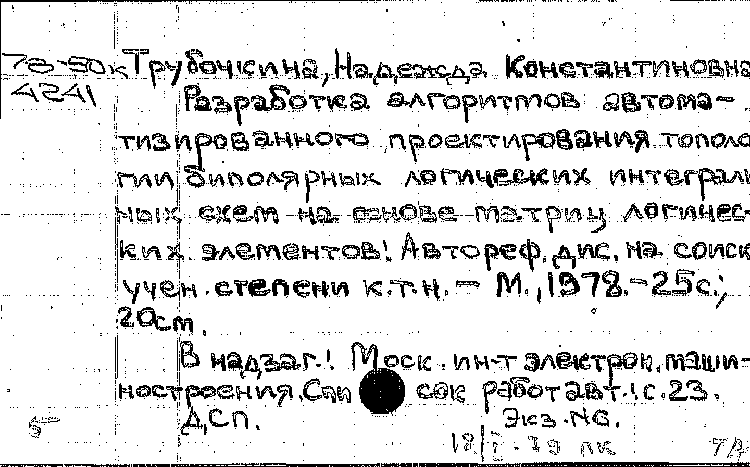 78-50к Трубочкина, Надежда Константиновна
4241
Разработка алгоритмов автома-
тизированного проектирования тополо
гии биполярных логических интеграль
ных схем на основе матриц логичес-
ких элементов: Автореф. дис. на соиск
учен. степени к.т.н. - М., 1978.-25с.;
20см.
В надзаг.: Моск. ин-т электрон. маши-
ностроения. Спи сок работ авт.: с. 23.
Д.С.П. Экз. №6.
5